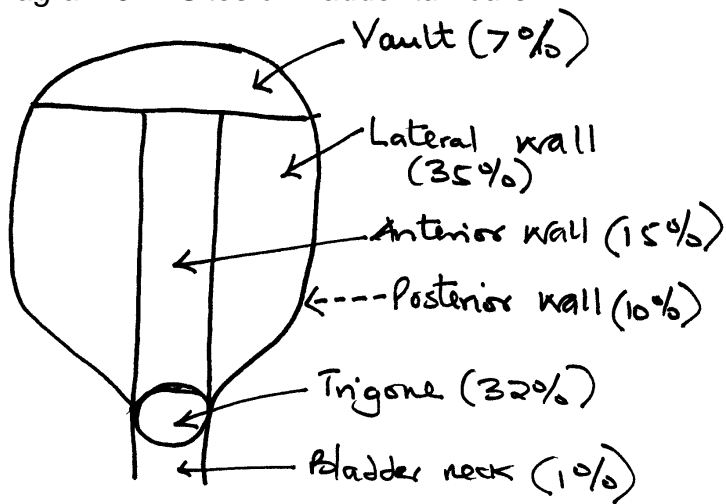 Vault (7%)
Lateral wall
(35%)
Anterior wall (15%)
Posterior wall (10%)
Trigone (32%)
Bladder neck (1%)